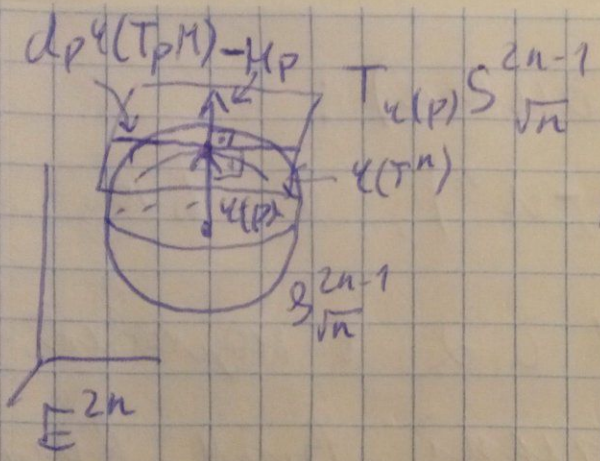 dₚφ(TₚM)
-Hₚ
T_{φ(p)} S^{2n-1}_{√n}
φ(Tⁿ)
φ(p)
S^{2n-1}_{√n}
E^{2n}